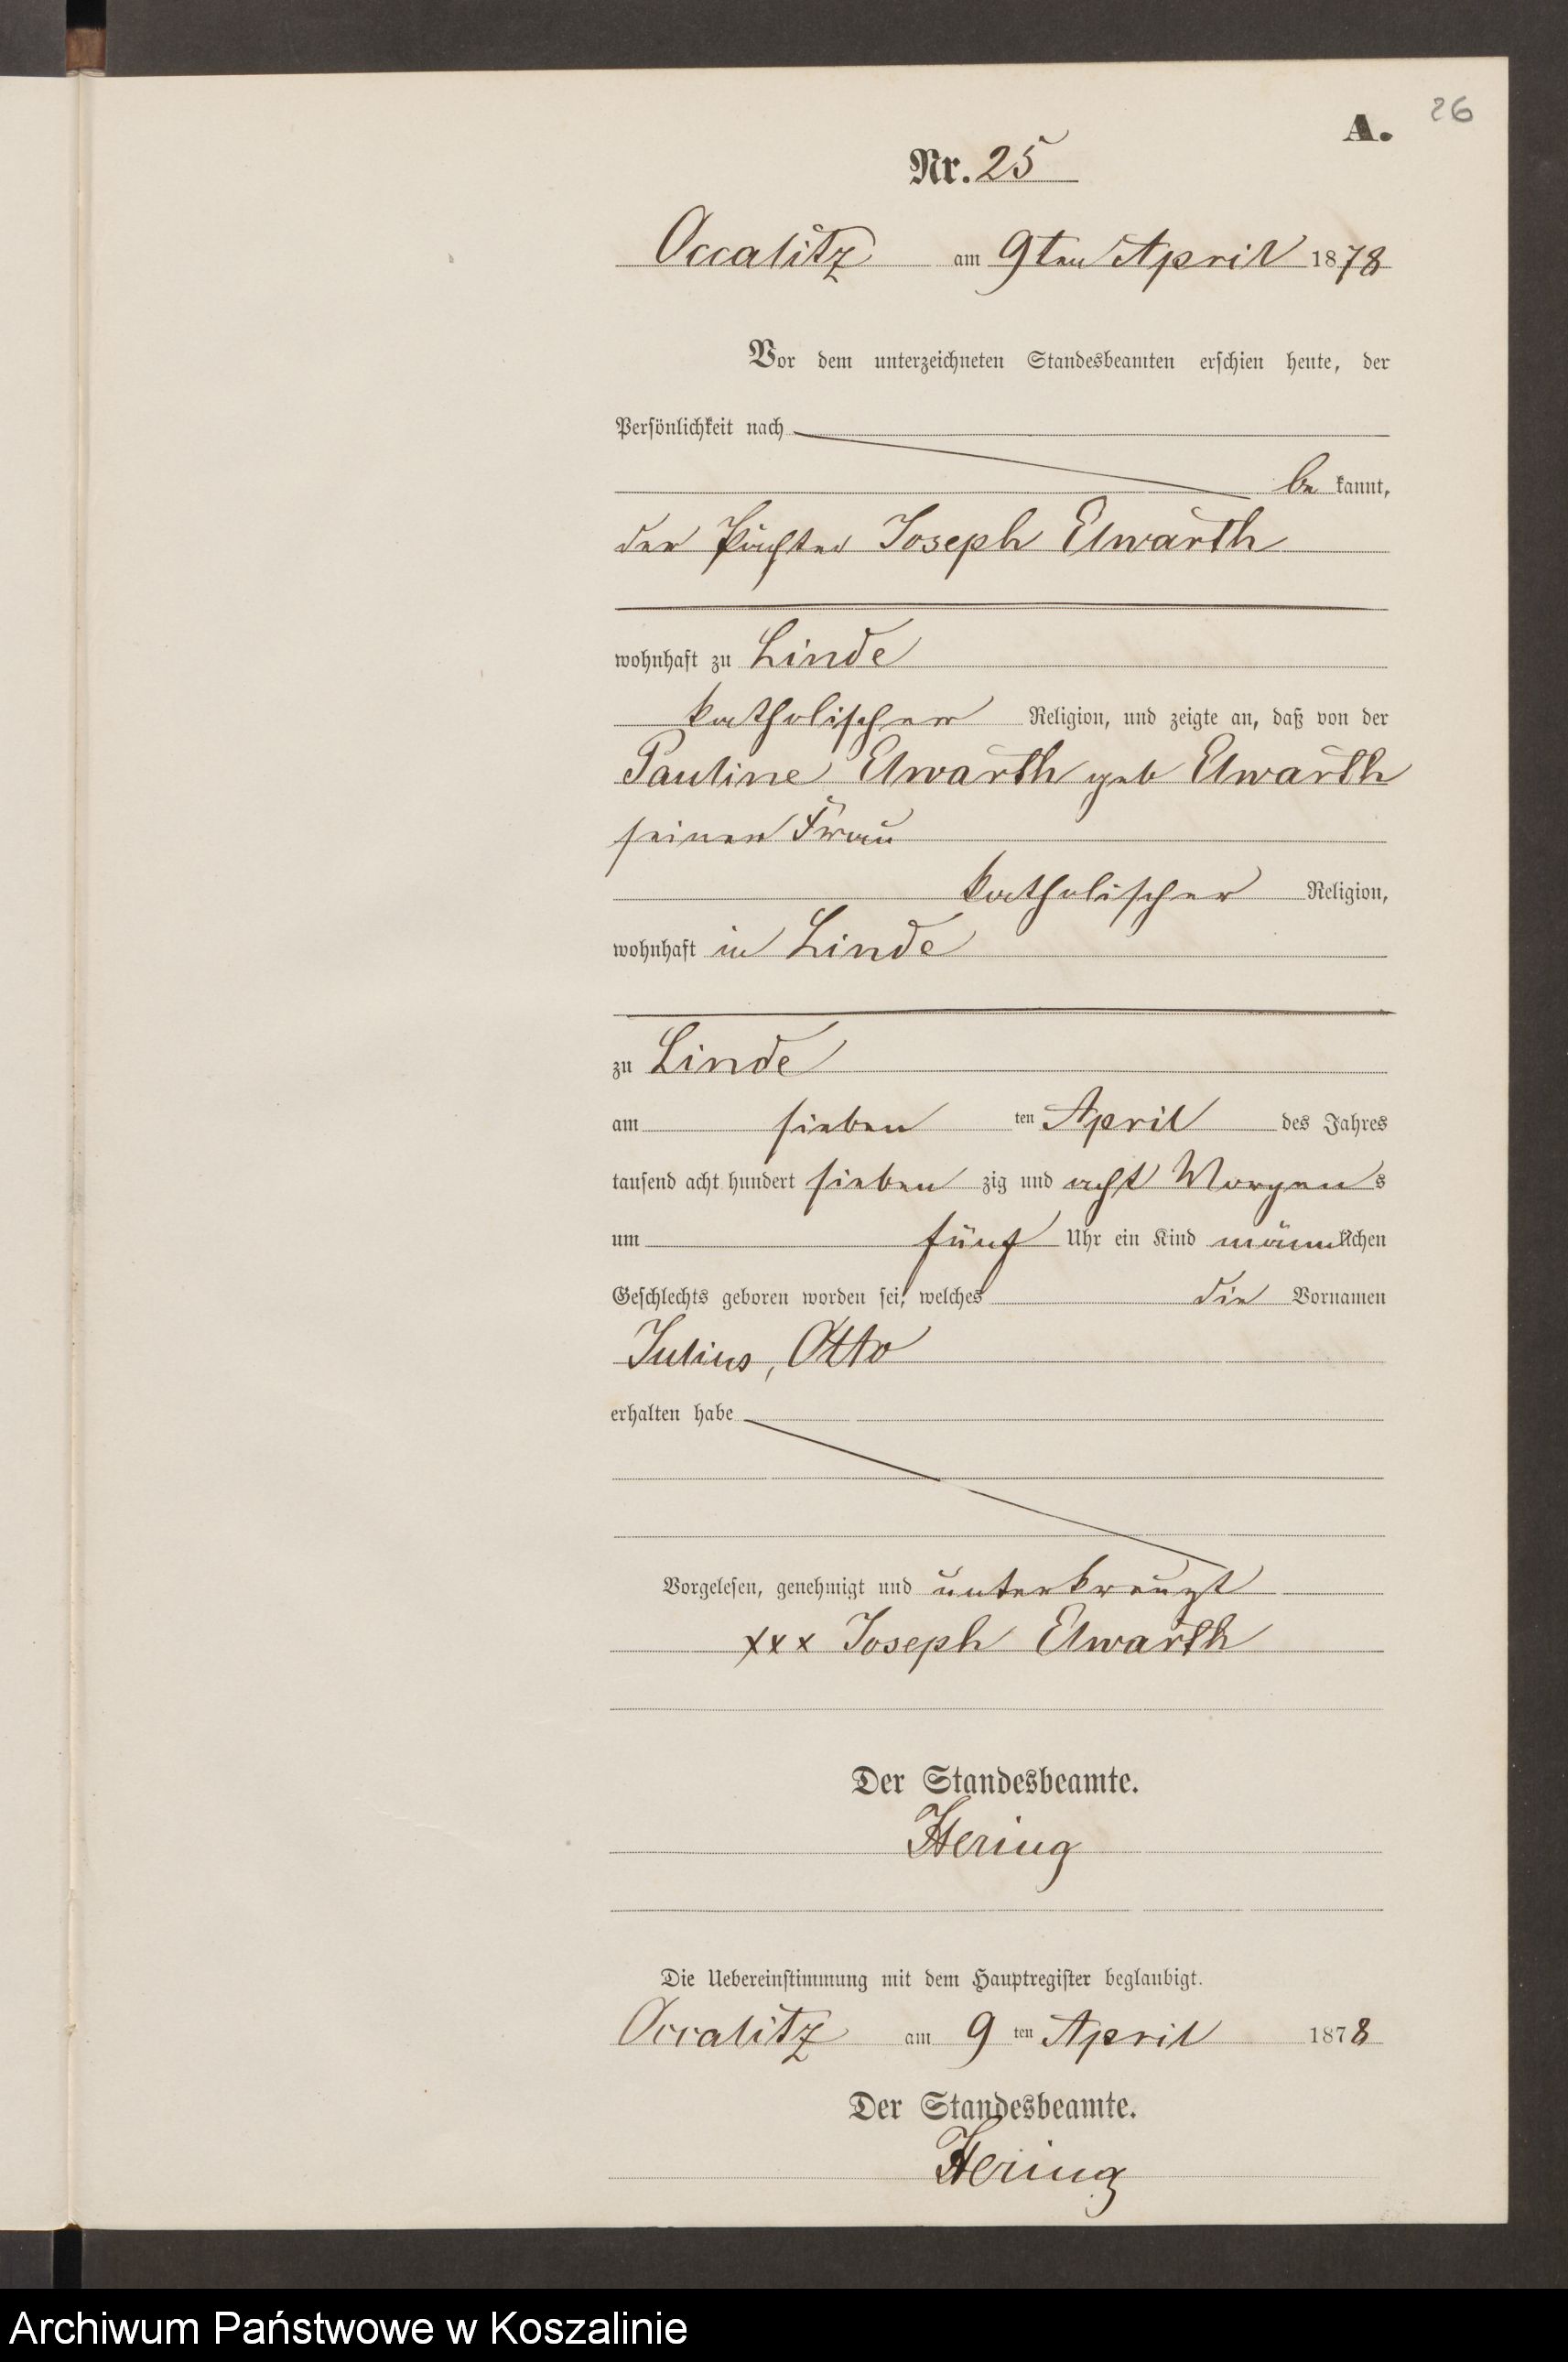 26
A.
Nr. 25
Occalitz am 9ten April 1878
Vor dem unterzeichneten Standesbeamten erschien heute, der
Persönlichkeit nach
be kannt,
der Pächter Joseph Elwarth
wohnhaft zu Linde
katholischer Religion, und zeigte an, daß von der
Pauline Elwarth geb Elwarth
seiner Frau
katholischer Religion,
wohnhaft in Linde
zu Linde
am sieben ten April des Jahres
tausend acht hundert sieben zig und acht Morgens
um fünf Uhr ein Kind männlichen
Geschlechts geboren worden sei, welches die Vornamen
Julius, Otto
erhalten habe
Vorgelesen, genehmigt und unterkreuzt
xxx Joseph Elwarth
Der Standesbeamte.
Hering
Die Uebereinstimmung mit dem Hauptregister beglaubigt.
Occalitz am 9 ten April 1878
Der Standesbeamte.
Hering
Archiwum Państwowe w Koszalinie